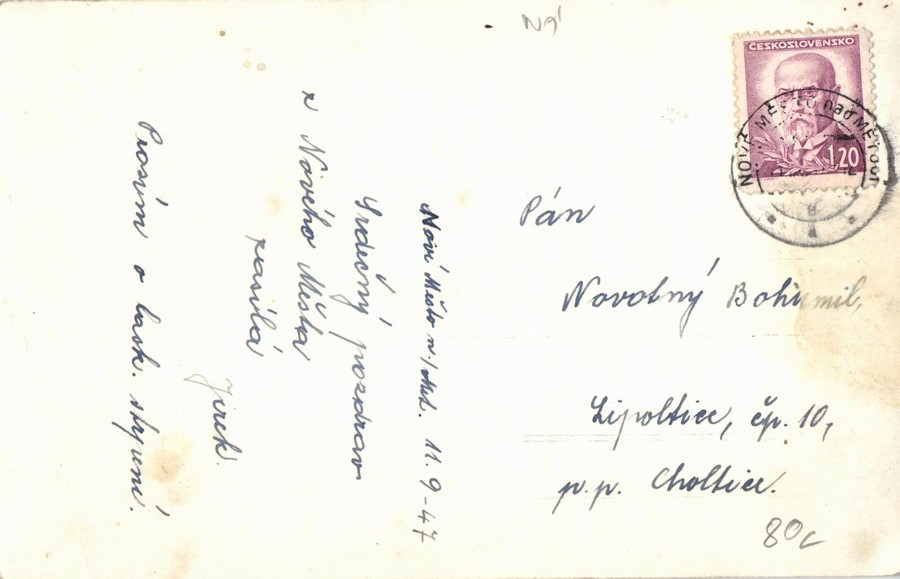 Nové Město n./Met. 11. 9 - 47
Srdečný pozdrav
z Nového Města
zasílá
Jirek.
Prosím o lask. slyšení.
ČESKOSLOVENSKO
1,20
NOVÉ MĚSTO nad METUJÍ
Pán
Novotný Bohumil.
Lipoltice, čp. 10,
p.p. Choltice.
80c